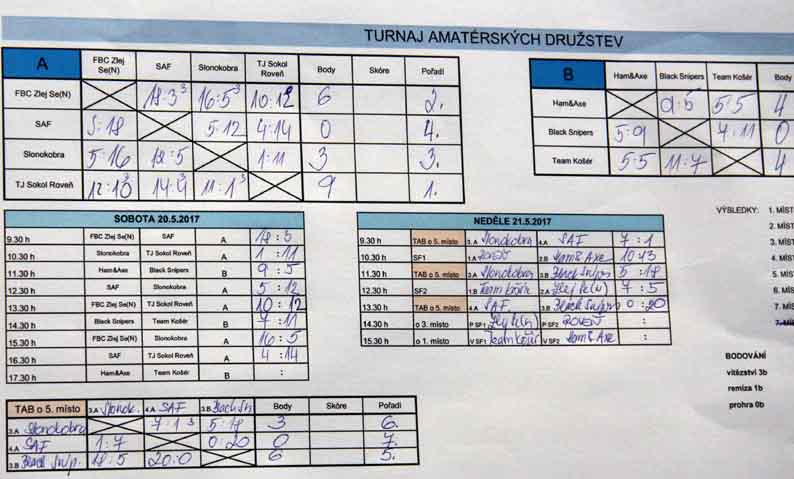 TURNAJ AMATÉRSKÝCH DRUŽSTEV
A FBC Zlej Se(N) SAF Slonokobra TJ Sokol Roveň Body Skóre Pořadí
FBC Zlej Se(N) 18:3 3 16:5 3 10:12 6 2.
SAF 3:18 5:12 4:14 0 4.
Slonokobra 5:16 12:5 1:11 3 3.
TJ Sokol Roveň 12:10 3 14:4 3 11:1 3 9 1.
B Ham&Axe Black Snipers Team Košér Body
Ham&Axe 9:5 5:5 4
Black Snipers 5:9 7:11 0
Team Košér 5:5 11:7 4
SOBOTA 20.5.2017
9.30 h FBC Zlej Se(N) SAF A 18:3
10.30 h Slonokobra TJ Sokol Roveň A 1:11
11.30 h Ham&Axe Black Snipers B 9:5
12.30 h SAF Slonokobra A 5:12
13.30 h FBC Zlej Se(N) TJ Sokol Roveň A 10:12
14.30 h Black Snipers Team Košér B 7:11
15.30 h FBC Zlej Se(N) Slonokobra A 16:5
16.30 h SAF TJ Sokol Roveň A 4:14
17.30 h Ham&Axe Team Košér B :
NEDĚLE 21.5.2017
9.30 h TAB o 5. místo 3.A Slonokobra 4.A SAF 7:1
10.30 h SF1 1.A ROVEŇ 2.B Ham&Axe 10:3
11.30 h TAB o 5. místo 3.A Slonokobra 3.B Black Snip. 5:18
12.30 h SF2 1.B Team Košér 2.A Zlej Se(n) 7:5
13.30 h TAB o 5. místo 4.A SAF 3.B Black Snipers 0:20
14.30 h o 3. místo P SF1 Zlej Se(n) P SF2 ROVEŇ :
15.30 h o 1. místo V SF1 Team Košér V SF2 Ham&Axe :
VÝSLEDKY: 1. MÍST
2. MÍST
3. MÍST
4. MÍS
5. MÍS
6. MÍS
7. MÍS
BODOVÁNÍ
vítězství 3b
remíza 1b
prohra 0b
TAB o 5. místo 3.A Slonok. 4.A SAF 3.B Black Sn Body Skóre Pořadí
3.A Slonokobra 7:1 3 5:18 3 6.
4.A SAF 1:7 0:20 0 7.
3.B Black Snip. 18:5 20:0 6 5.